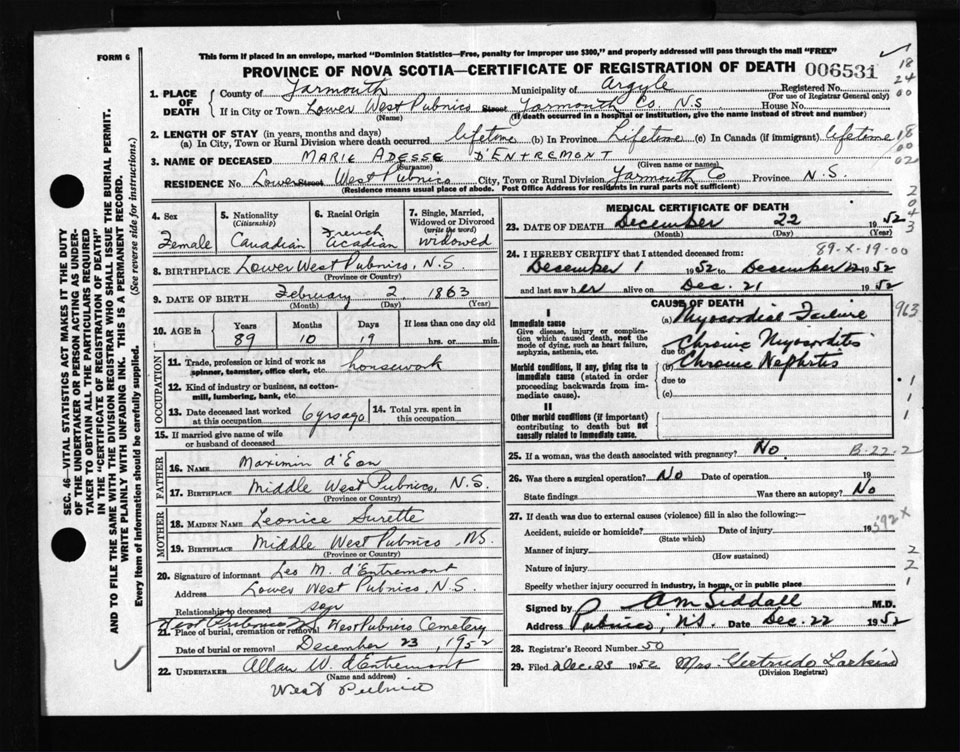 FORM 6
This form if placed in an envelope, marked "Dominion Statistics—Free, penalty for improper use $300," and properly addressed will pass through the mail "FREE"
PROVINCE OF NOVA SCOTIA—CERTIFICATE OF REGISTRATION OF DEATH 006531
1. PLACE OF DEATH County of Yarmouth Municipality of Argyle Registered No.
(For use of Registrar General only)
If in City or Town Lower West Pubnico Street Yarmouth Co. N.S House No.
(Name) (If death occurred in a hospital or institution, give the name instead of street and number)
2. LENGTH OF STAY (in years, months and days)
(a) In City, Town or Rural Division where death occurred lifetime (b) In Province Lifetime (c) In Canada (if immigrant) lifetime
3. NAME OF DECEASED MARIE ADESSE D'ENTREMONT
(Surname) (Given name or names)
RESIDENCE No. Lower Street West Pubnico City, Town or Rural Division Yarmouth Co Province N.S.
(Residence means usual place of abode. Post Office Address for residents in rural parts not sufficient)
4. Sex Female
5. Nationality (Citizenship) Canadian
6. Racial Origin French Acadian
7. Single, Married, Widowed or Divorced (write the word) widowed
8. BIRTHPLACE Lower West Pubnico, N.S.
(Province or Country)
9. DATE OF BIRTH February 2, 1863
(Month) (Day) (Year)
10. AGE in Years Months Days If less than one day
89 10 19 hrs. or min.
OCCUPATION
11. Trade, profession or kind of work as spinner, teamster, office clerk, etc. housework
12. Kind of industry or business, as cotton-mill, lumbering, bank, etc.
13. Date deceased last worked at this occupation 6 yrs ago 14. Total yrs. spent in this occupation
15. If married give name of wife or husband of deceased
FATHER
16. NAME Maximin d'Eon
17. BIRTHPLACE Middle West Pubnico, N.S.
(Province or Country)
MOTHER
18. MAIDEN NAME Leonice Surette
19. BIRTHPLACE Middle West Pubnico, NS.
(Province or Country)
20. Signature of informant Leo M. d'Entremont
Address Lower West Pubnico, N.S.
Relationship to deceased son
21. Place of burial, cremation or removal West Pubnico Cemetery
Date of burial or removal December 23, 1952
22. UNDERTAKER Allan W. d'Entremont
(Name and address)
West Pubnico
MEDICAL CERTIFICATE OF DEATH
23. DATE OF DEATH December 22 1952
(Month) (Day) (Year)
89-X-19-00
24. I HEREBY CERTIFY that I attended deceased from:
December 1 1952 to December 22 1952
and last saw her alive on Dec. 21 1952
CAUSE OF DEATH
I
Immediate cause
Give disease, injury or complication which caused death, not the mode of dying, such as heart failure, asphyxia, asthenia, etc.
(a) Myocordial Failure
due to Chronic Myocorditis
Morbid conditions, if any, giving rise to immediate cause (stated in order proceeding backwards from immediate cause).
(b) Chronic Nephritis
due to
(c)
II
Other morbid conditions (if important) contributing to death but not causally related to immediate cause.
963
25. If a woman, was the death associated with pregnancy? No. B-22-2
26. Was there a surgical operation? No Date of operation 19
State findings Was there an autopsy? No
27. If death was due to external causes (violence) fill in also the following:—
Accident, suicide or homicide? Date of injury 19 592X
(State which)
Manner of injury
(How sustained)
Nature of injury
Specify whether injury occurred in industry, in home, or in public place
Signed by A M Siddall M.D.
Address Pubnico, N.S. Date Dec. 22 1952
28. Registrar's Record Number 50
29. Filed Dec. 23 1952 Mrs. Gertrude Larkin
(Division Registrar)
SEC. 46—VITAL STATISTICS ACT MAKES IT THE DUTY
OF THE UNDERTAKER OR PERSON ACTING AS UNDER-
TAKER TO OBTAIN ALL THE PARTICULARS REQUIRED
IN THE "CERTIFICATE OF REGISTRATION OF DEATH"
AND TO FILE THE SAME WITH THE DIVISION REGISTRAR WHO SHALL ISSUE THE BURIAL PERMIT.
WRITE PLAINLY WITH UNFADING INK. THIS IS A PERMANENT RECORD.
Every item of information should be carefully supplied. (See reverse side for instructions.)